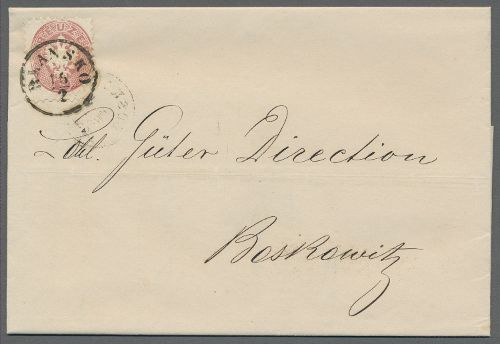 KREUZER
BLANSKO
16
2
Löbl. Güter Direction
Boskowitz